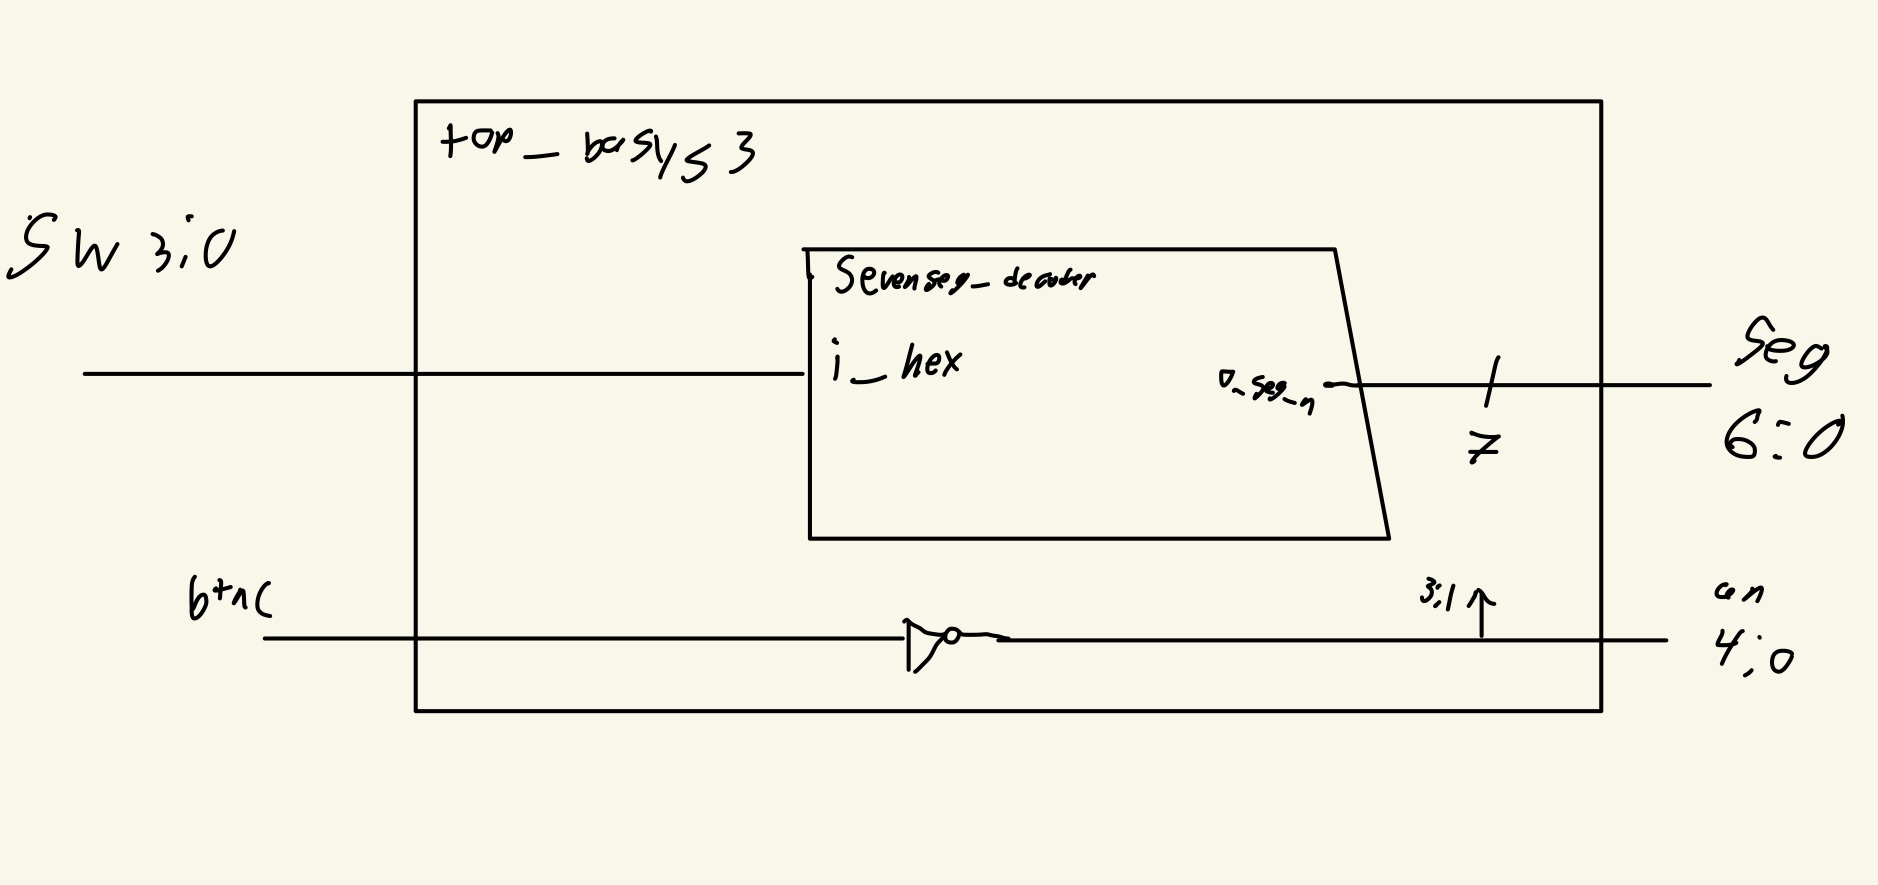 top_basys3
SW 3:0
Sevenseg_decoder
i_hex
o_seg_n
Seg
6:0
7
btnC
3:1
an
4:0